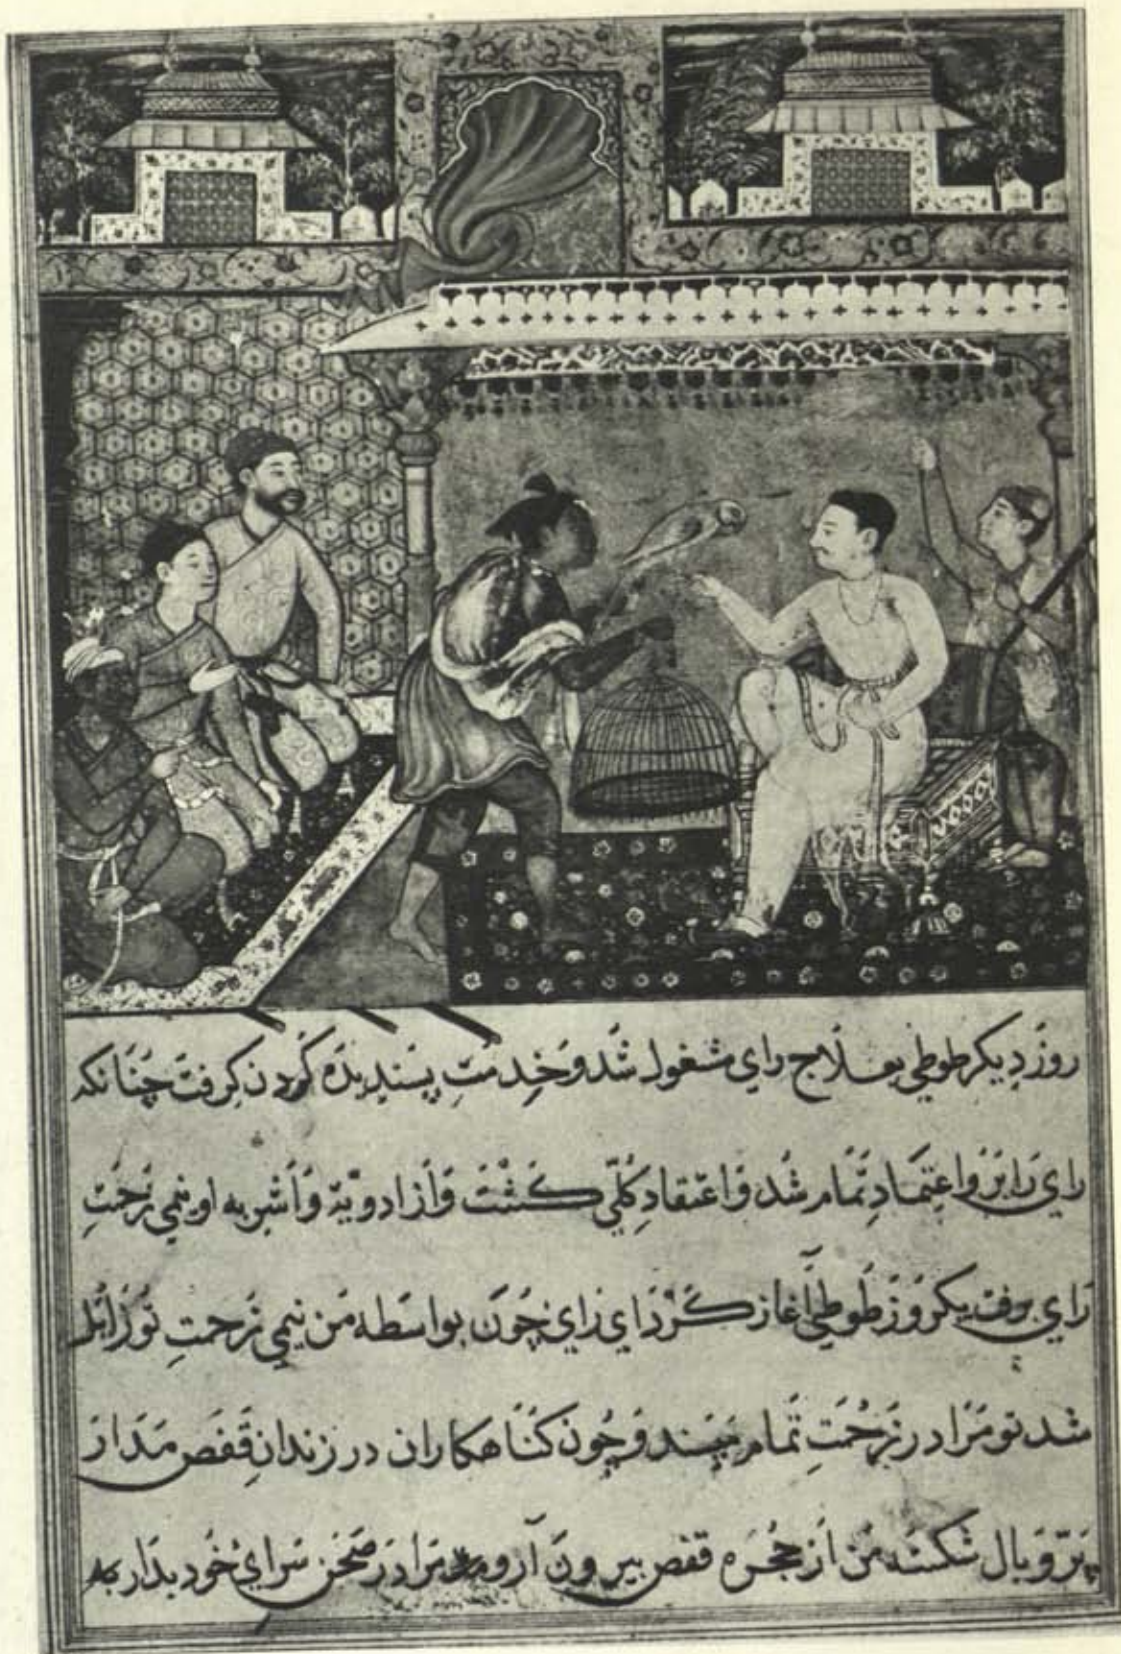 روز دیکر طوطی بعلاج رای مشغول شد و خدمت پسندیده کردن کرفت چنانکه
رای را برو اعتماد تمام شد و اعتقاد کلی کشت و از ادویه و اشربه او نیمی زحمت
رای برفت یکروز طوطی آغاز کرد ای رای چون بواسطه من نیمی زحمت تو زائل
شد تو مرا در زحمت تمام مپسند و چون کناهکاران در زندان قفص مدار
پر و بال شکسته من از حجره قفص بیرون آر و مرا در صحن سرای خود بدار